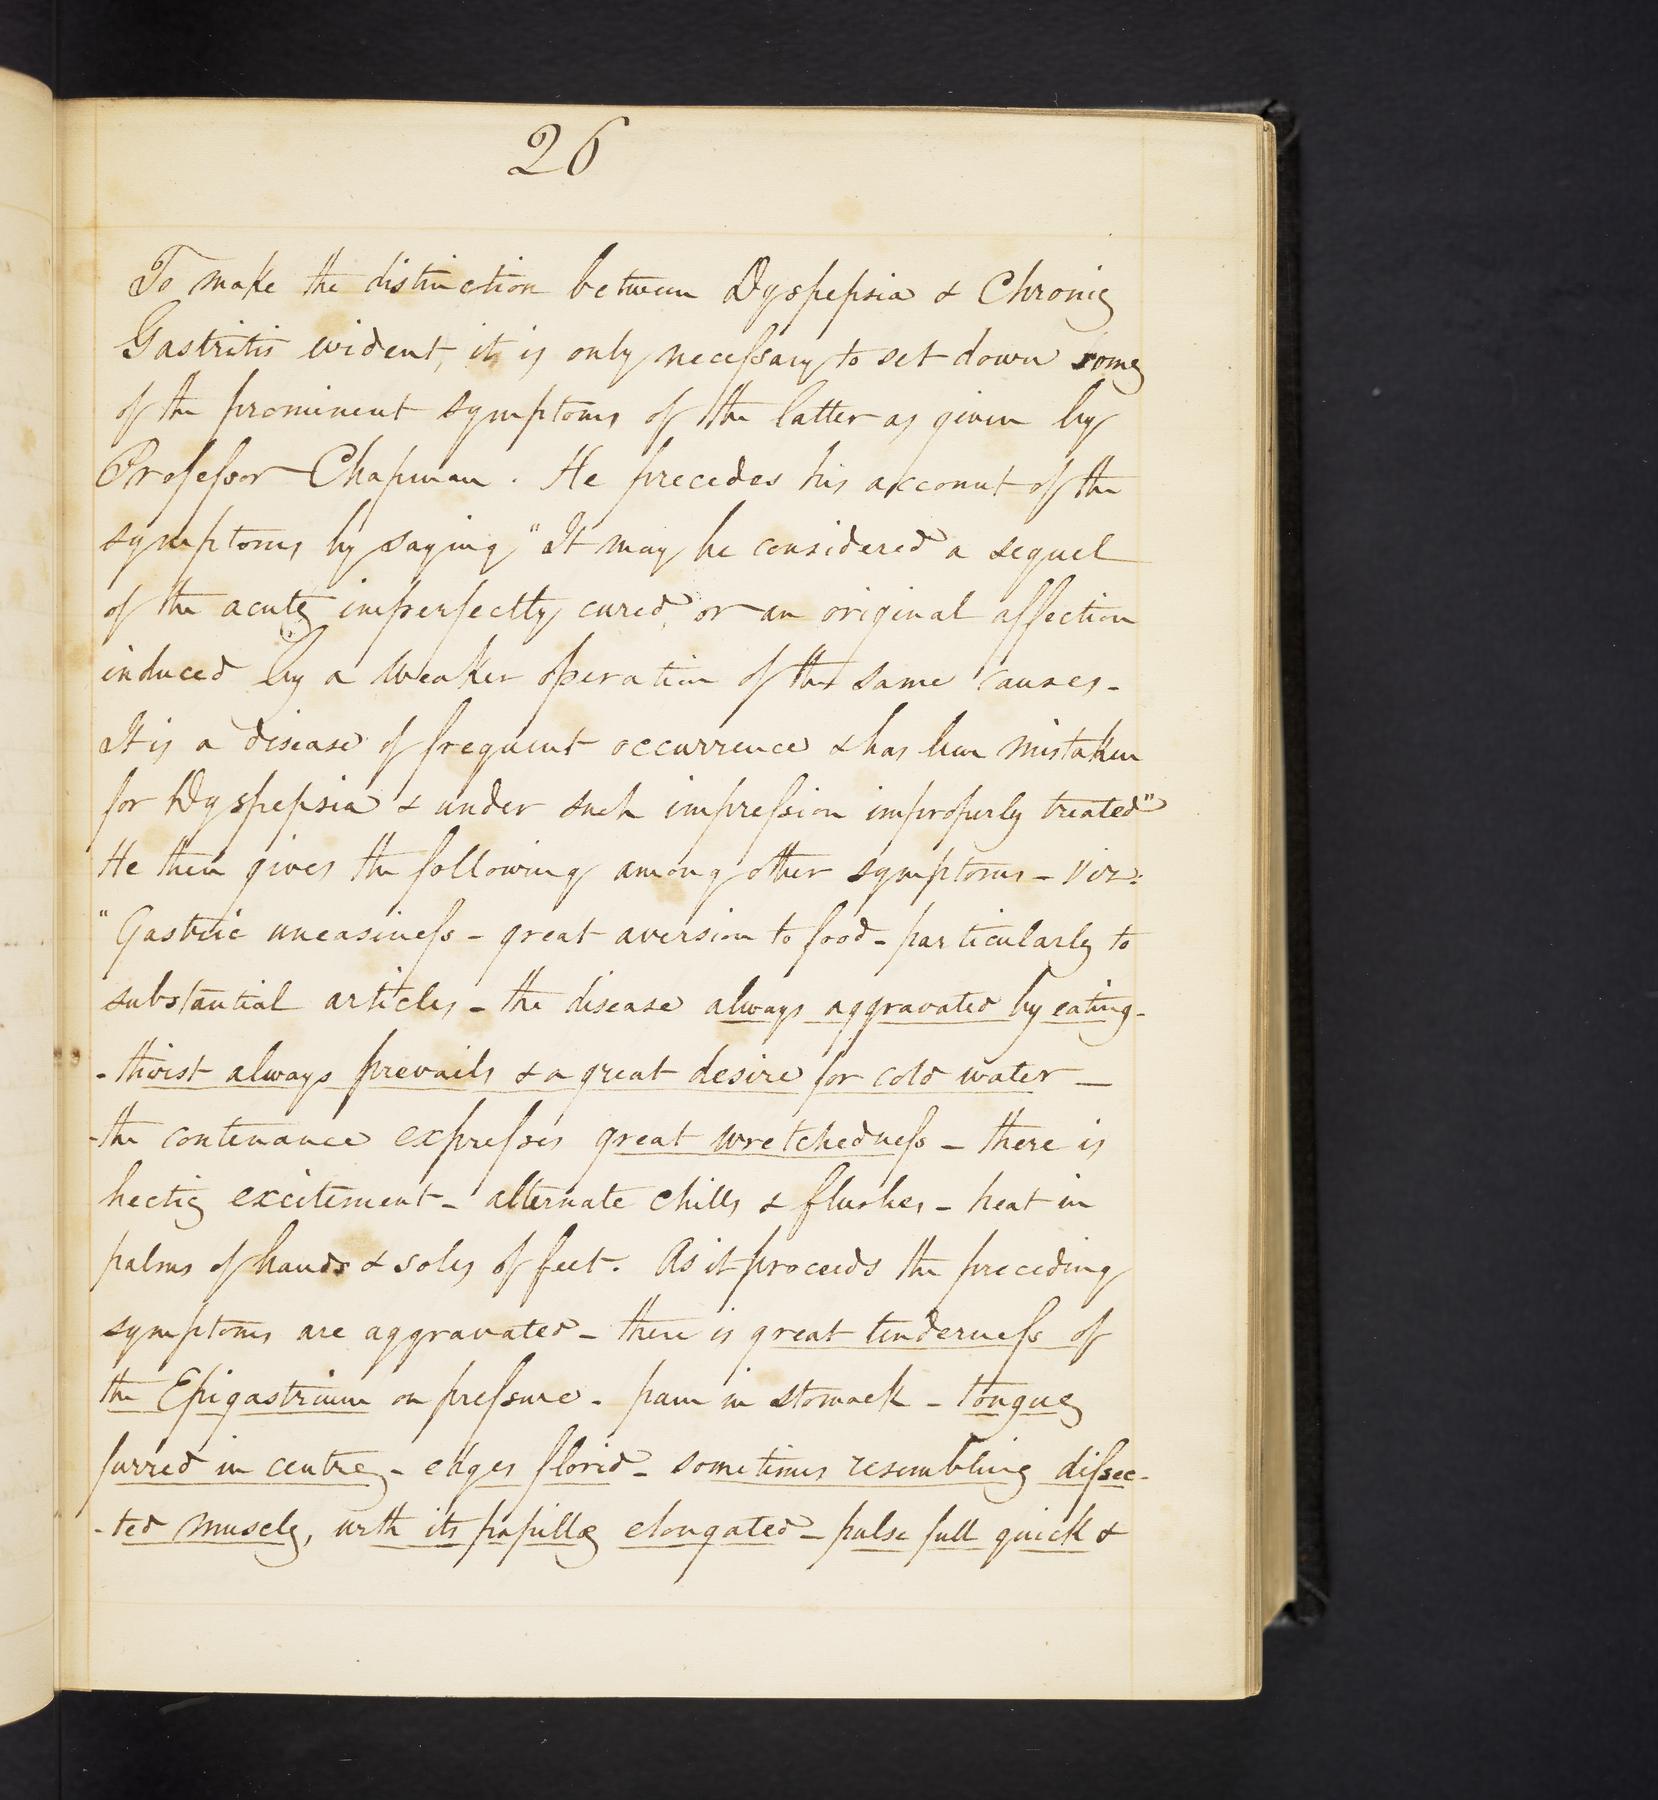 26
To make the distinction between Dyspepsia & Chronic
Gastritis evident, it is only necessary to set down some
of the prominent symptoms of the latter as given by
Professor Chapman. He precedes his account of the
symptoms by saying "It may be considered a sequel
of the acute imperfectly cured, or an original affection
induced by a weaker operation of the same causes -
It is a disease of frequent occurrence & has been mistaken
for Dyspepsia & under such impression improperly treated"
He then gives the following among other symptoms - viz:
"Gastric uneasiness - great aversion to food - particularly to
substantial articles - the disease always aggravated by eating -
- thirst always prevails & a great desire for cold water -
- the contenance expresses great wretchedness - there is
hectic excitement - alternate chills & flushes - heat in
palms of hands & soles of feet. As it proceeds the preceding
symptoms are aggravated - there is great tenderness of
the Epigastrium on pressure - pain in stomack - tongue
furred in centre - edges florid - sometimes resembling dissec-
-ted muscle, with its papillæ elongated - pulse full quick &